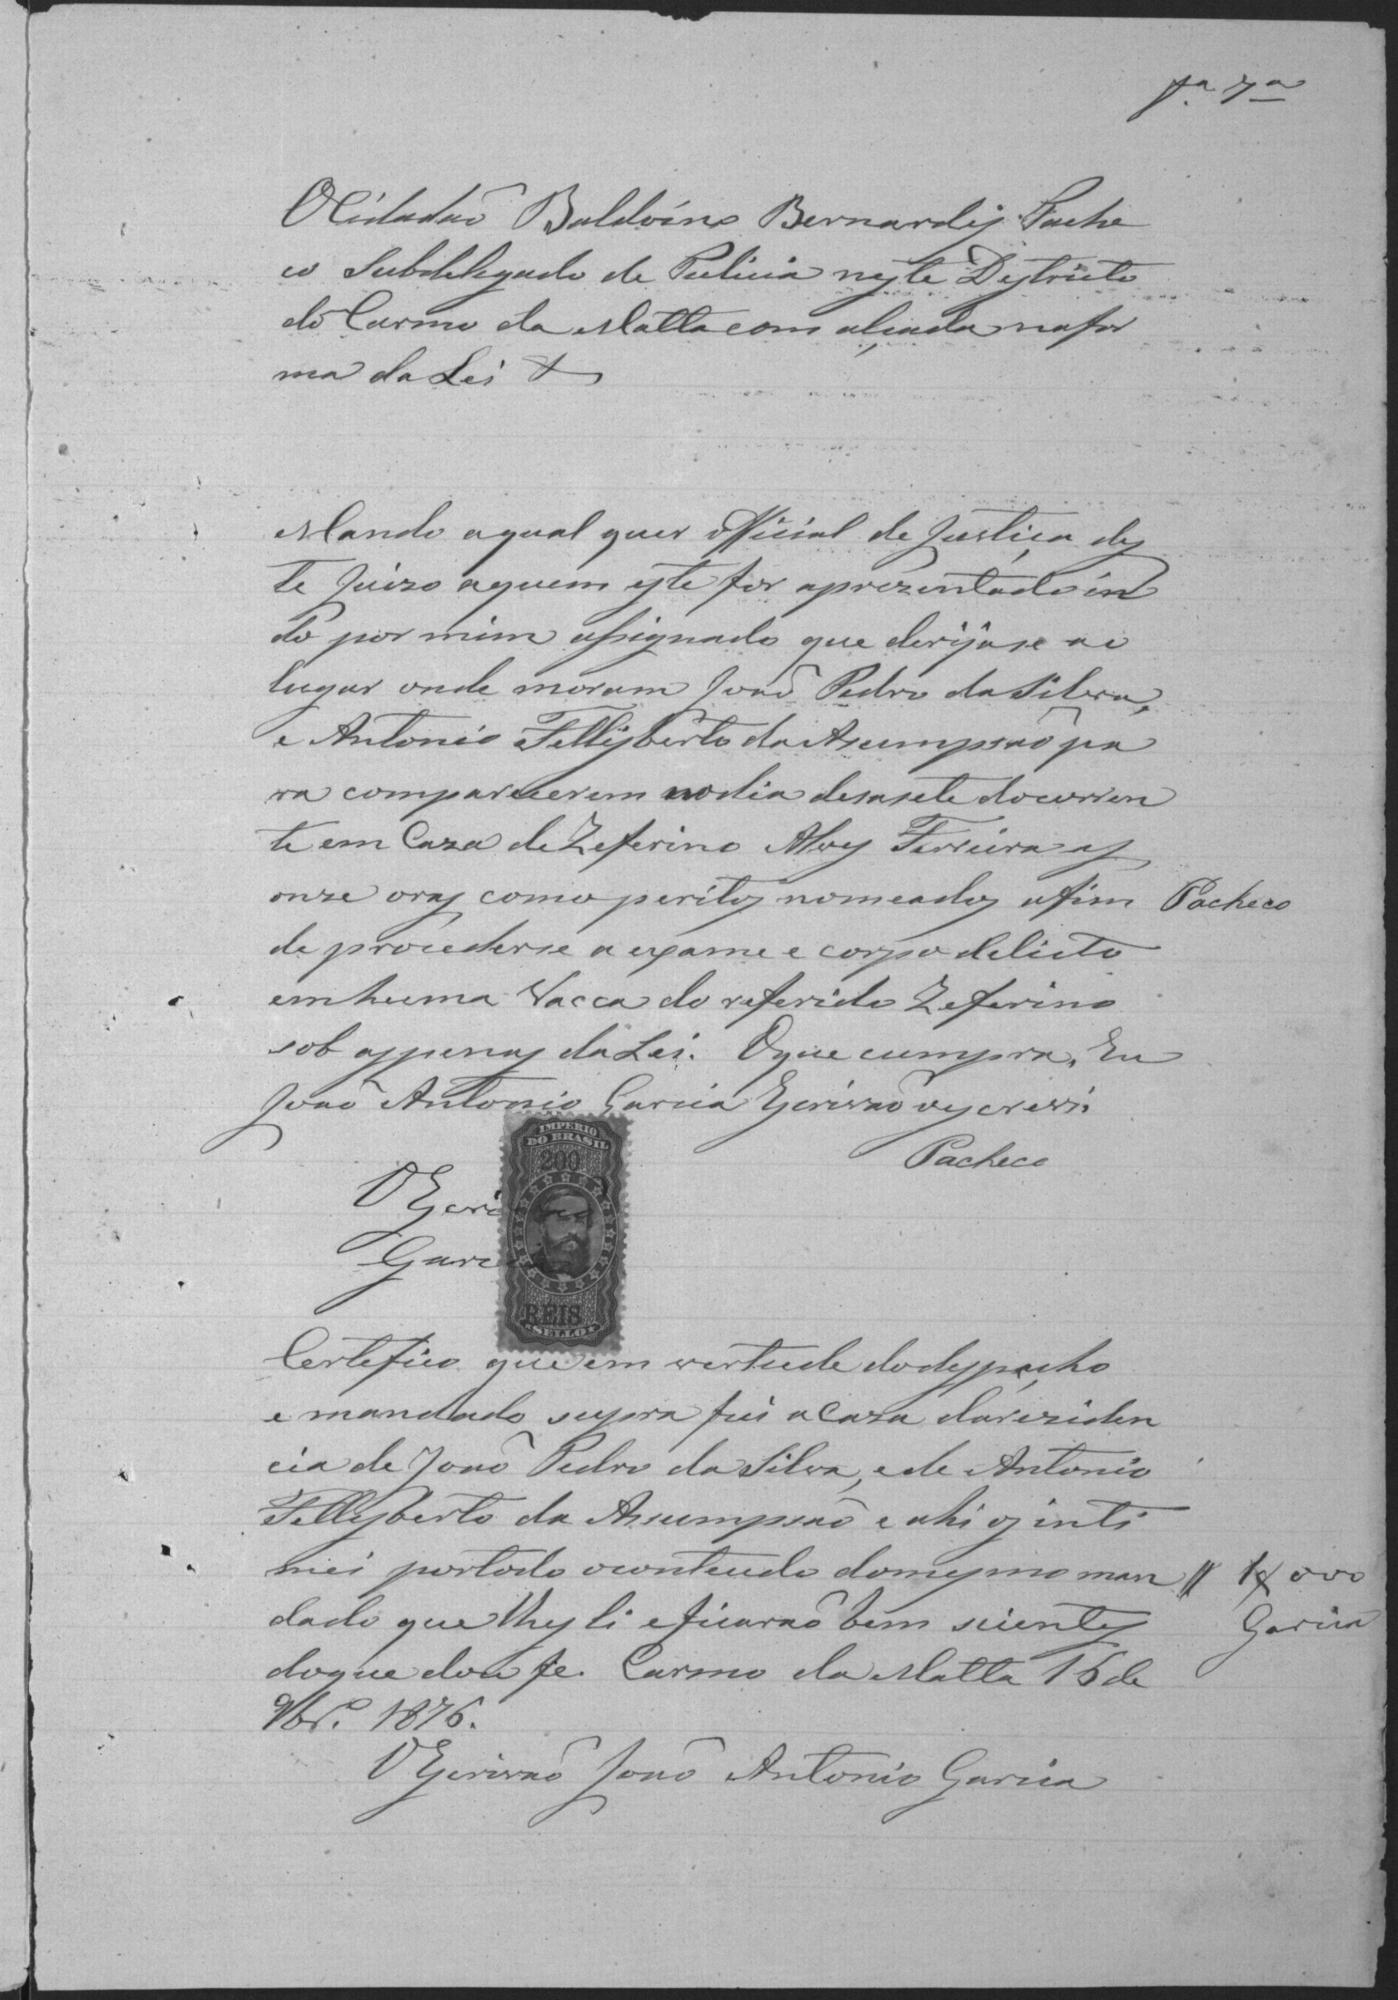 fª 7ª
O Cidadaõ Baldoino Bernardes Pache
co Subdelegado de Pulicia neste Destricto
do Carmo da Matta com alçada na for
ma da Lei &
Mando a qual quer official de Justiça des
te Juizo a quem este for aprezentado in
do por mim assignado que derijase ao
lugar onde moram Joaõ Pedro da Silva,
e Antonio Fellisberto da Asumpsaõ pa
ra comparecerem no dia desasete do corren
te em Caza de Zeferino Alves Ferreira as
onze oras como peritos nomeados afim
de procederse a exame e corpo delicto
em huma Vacca do referido Zeferino
sob as penas da Lei. O que cumpra, Eu
Joaõ Antonio Garcia Escrivaõ o escrevi.
Pacheco
Pacheco
IMPERIO
DO BRASIL
200
REIS
SELLO
O Escrivaõ
Garcia
Certefico que em vertude do despacho
e mandado supra fui a Caza da reziden
cia de Joaõ Pedro da Silva, e de Antonio
Fellisberto da Asumpsaõ e ahi os inti
mei por todo o conteudo do mesmo man
dado que lhes li e ficaraõ bem scientes
do que dou fe. Carmo da Matta 16 de
9br.º 1876.
O Escrivaõ Joaõ Antonio Garcia
1$000
Garcia